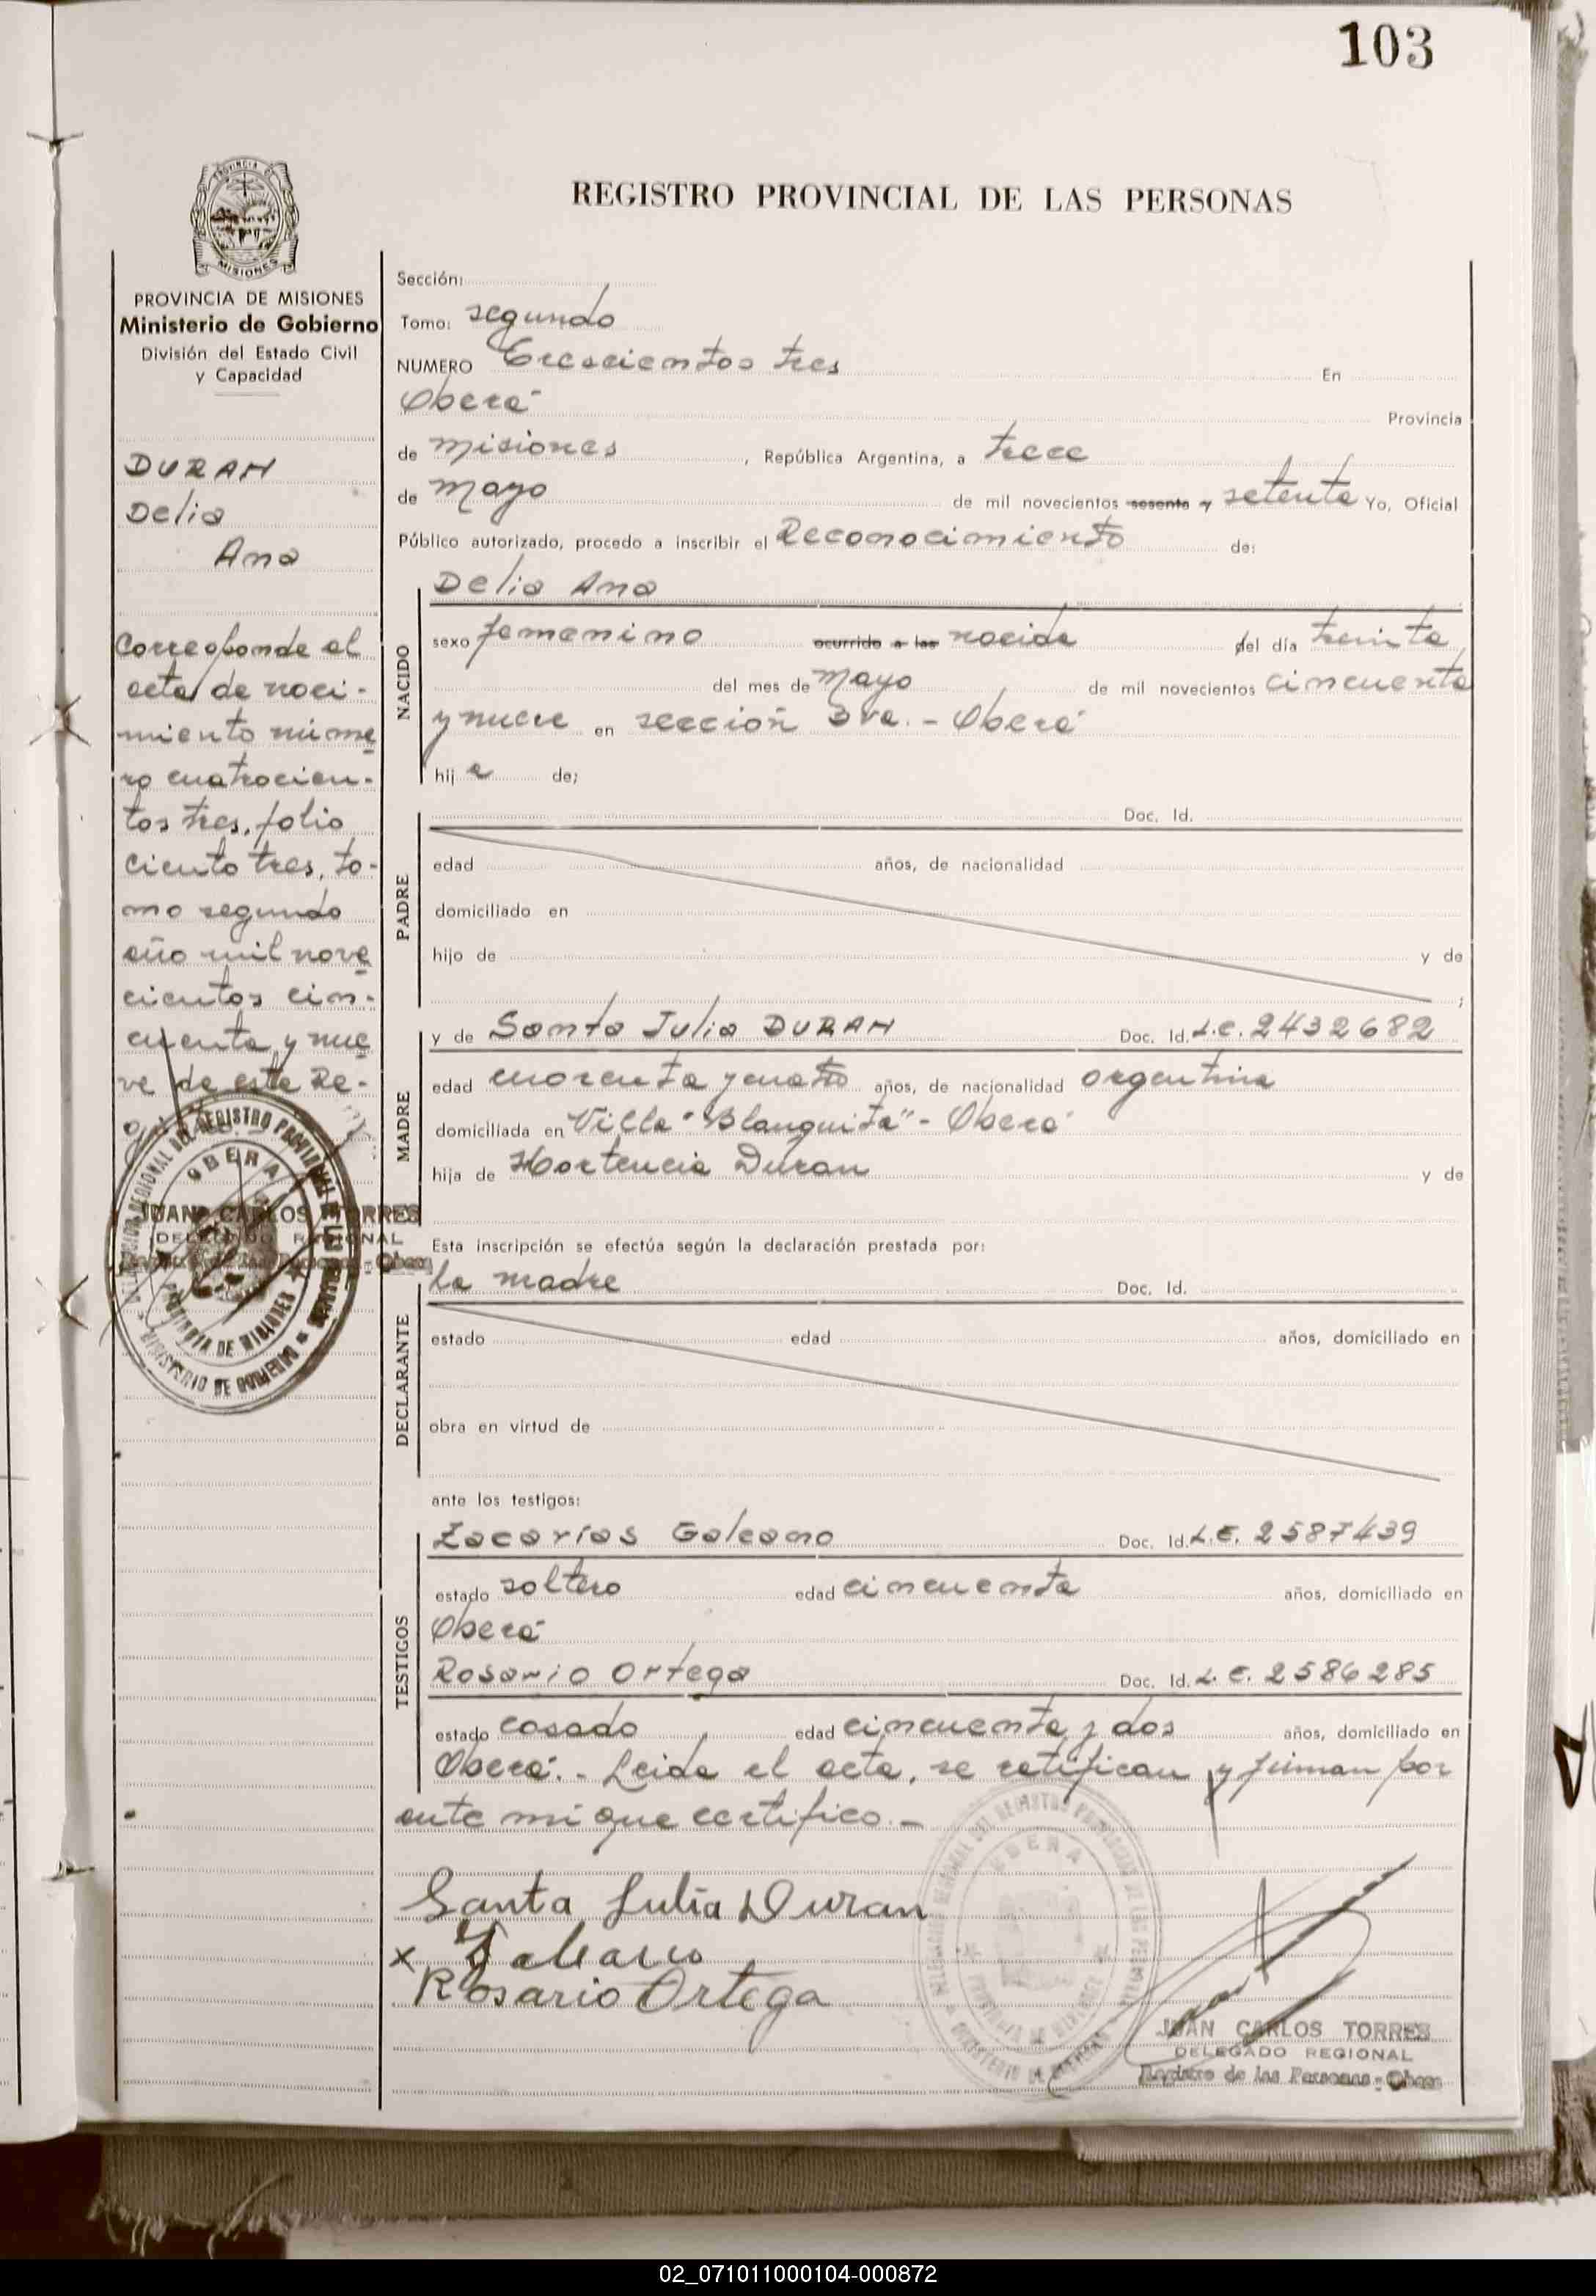 103
REGISTRO PROVINCIAL DE LAS PERSONAS
PROVINCIA DE MISIONES
Ministerio de Gobierno
División del Estado Civil
y Capacidad
DURAN
Delia
Ana
Corresponde al
acta de naci-
miento núme
ro cuatrocien-
tos tres, folio
ciento tres, to-
mo segundo
año mil nove
cientos cin-
cuenta y nue
ve de este Re-
JUAN CARLOS TORRES
DELEGADO REGIONAL
Sección:
Tomo: segundo
NUMERO Trescientos tres En
Oberá Provincia
de Misiones, República Argentina, a trece
de Mayo de mil novecientos sesenta y setenta Yo, Oficial
Público autorizado, procedo a inscribir el Reconocimiento de:
NACIDO
Delia Ana
sexo femenino ocurrido a las nacida del día treinta
del mes de Mayo de mil novecientos cincuenta
y nueve en sección 3ra. - Oberá
hija de;
PADRE
Doc. Id.
edad años, de nacionalidad
domiciliado en
hijo de y de
;
MADRE
y de Santa Julia DURAN Doc. Id. L.C. 2432682
edad cuarenta y cuatro años, de nacionalidad argentina
domiciliada en Villa "Blanquita" - Oberá
hija de Hortencia Duran y de
Esta inscripción se efectúa según la declaración prestada por:
DECLARANTE
la madre Doc. Id.
estado edad años, domiciliado en
obra en virtud de
ante los testigos:
TESTIGOS
Zacarías Galeano Doc. Id. L.E. 2587439
estado soltero edad cincuenta años, domiciliado en
Oberá
Rosario Ortega Doc. Id. L.E. 2586285
estado casado edad cincuenta y dos años, domiciliado en
Oberá. - Leida el acta, se ratifican y firman por
ante mí que certifico. -
Santa Julia Duran
x
Rosario Ortega
JUAN CARLOS TORRES
DELEGADO REGIONAL
Registro de las Personas - Obera
02_071011000104-000872